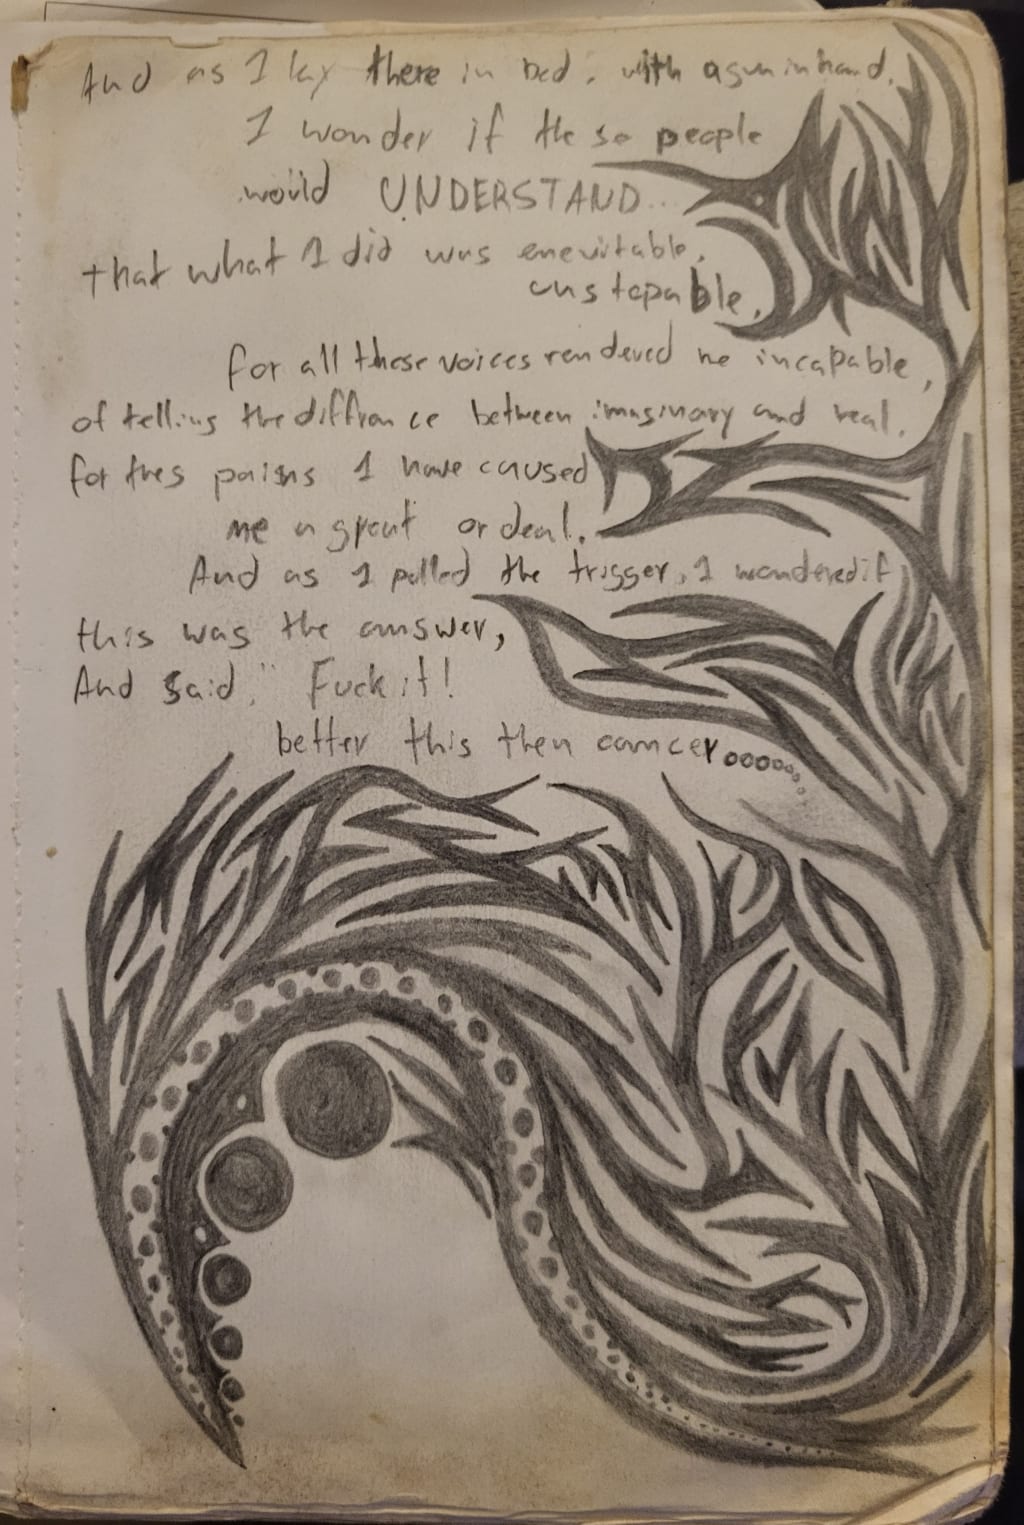 And as I lay there in bed, with a gun in hand,
I wonder if these people
would UNDERSTAND...
that what I did was enevitable,
unstopable,
for all these voices rendered me incapable,
of telling the diffrance between imaginary and real.
for thes pains I have caused
me a great ordeal.
And as I pulled the trigger, I wondered if
this was the answer,
And said, " Fuck it!
better this then cancer